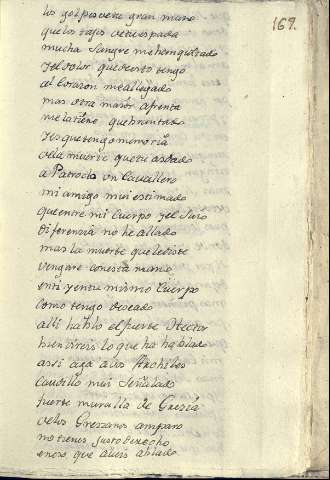 169.
los golpes de tu gran mano
que los tajos de tu espada
mucha sangre me han quitado
y el dolor que desto tengo
al corazon me a llegado
mas otra maior afrenta
me la tiene quebrantado
y es que tengo memoria
de la muerte que tu as dado
a Patroclo un Cavallero
mi amigo mui estimado
que entre mi Cuerpo y el suio
diferenzia no he allado
mas la muerte que le diste
vengare con esta mano
en ti y en tu mismo Cuerpo
como tengo deseado
alli hablo el fuerte Hector
bien vereis lo que ha hablado
assi aga a vos Archiles
Caudillo mui señalado
fuerte muralla de Grezia
de los Grezianos amparo
no teneis justo derecho
en eso que aveis ablado